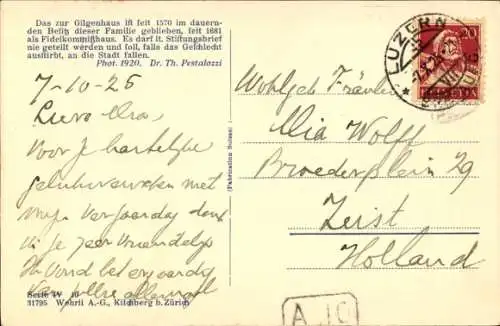 Das zur Gilgenhaus ist seit 1570 im dauern-
den Besitz dieser Familie geblieben, seit 1681
als Fideikommißhaus. Es darf lt. Stiftungsbrief
nie geteilt werden und soll, falls das Geschlecht
ausstirbt, an die Stadt fallen.
Phot. 1920. Dr. Th. Pestalozzi
7-10-25
Lieve
Voor je hartelijke
gelukwenschen met
mijn verjaardag dank
ik je zeer vriendelijk
Ik vond het
allemaal
Serie IV 10
31795 Wehrli A.-G., Kilchberg b. Zürich
(Fabrication Suisse)
LUZERN
20
HELVETIA
Wohlgeb. Fräulein
Mia Wolff
Broederplein 29
Zeist
Holland
A.JC